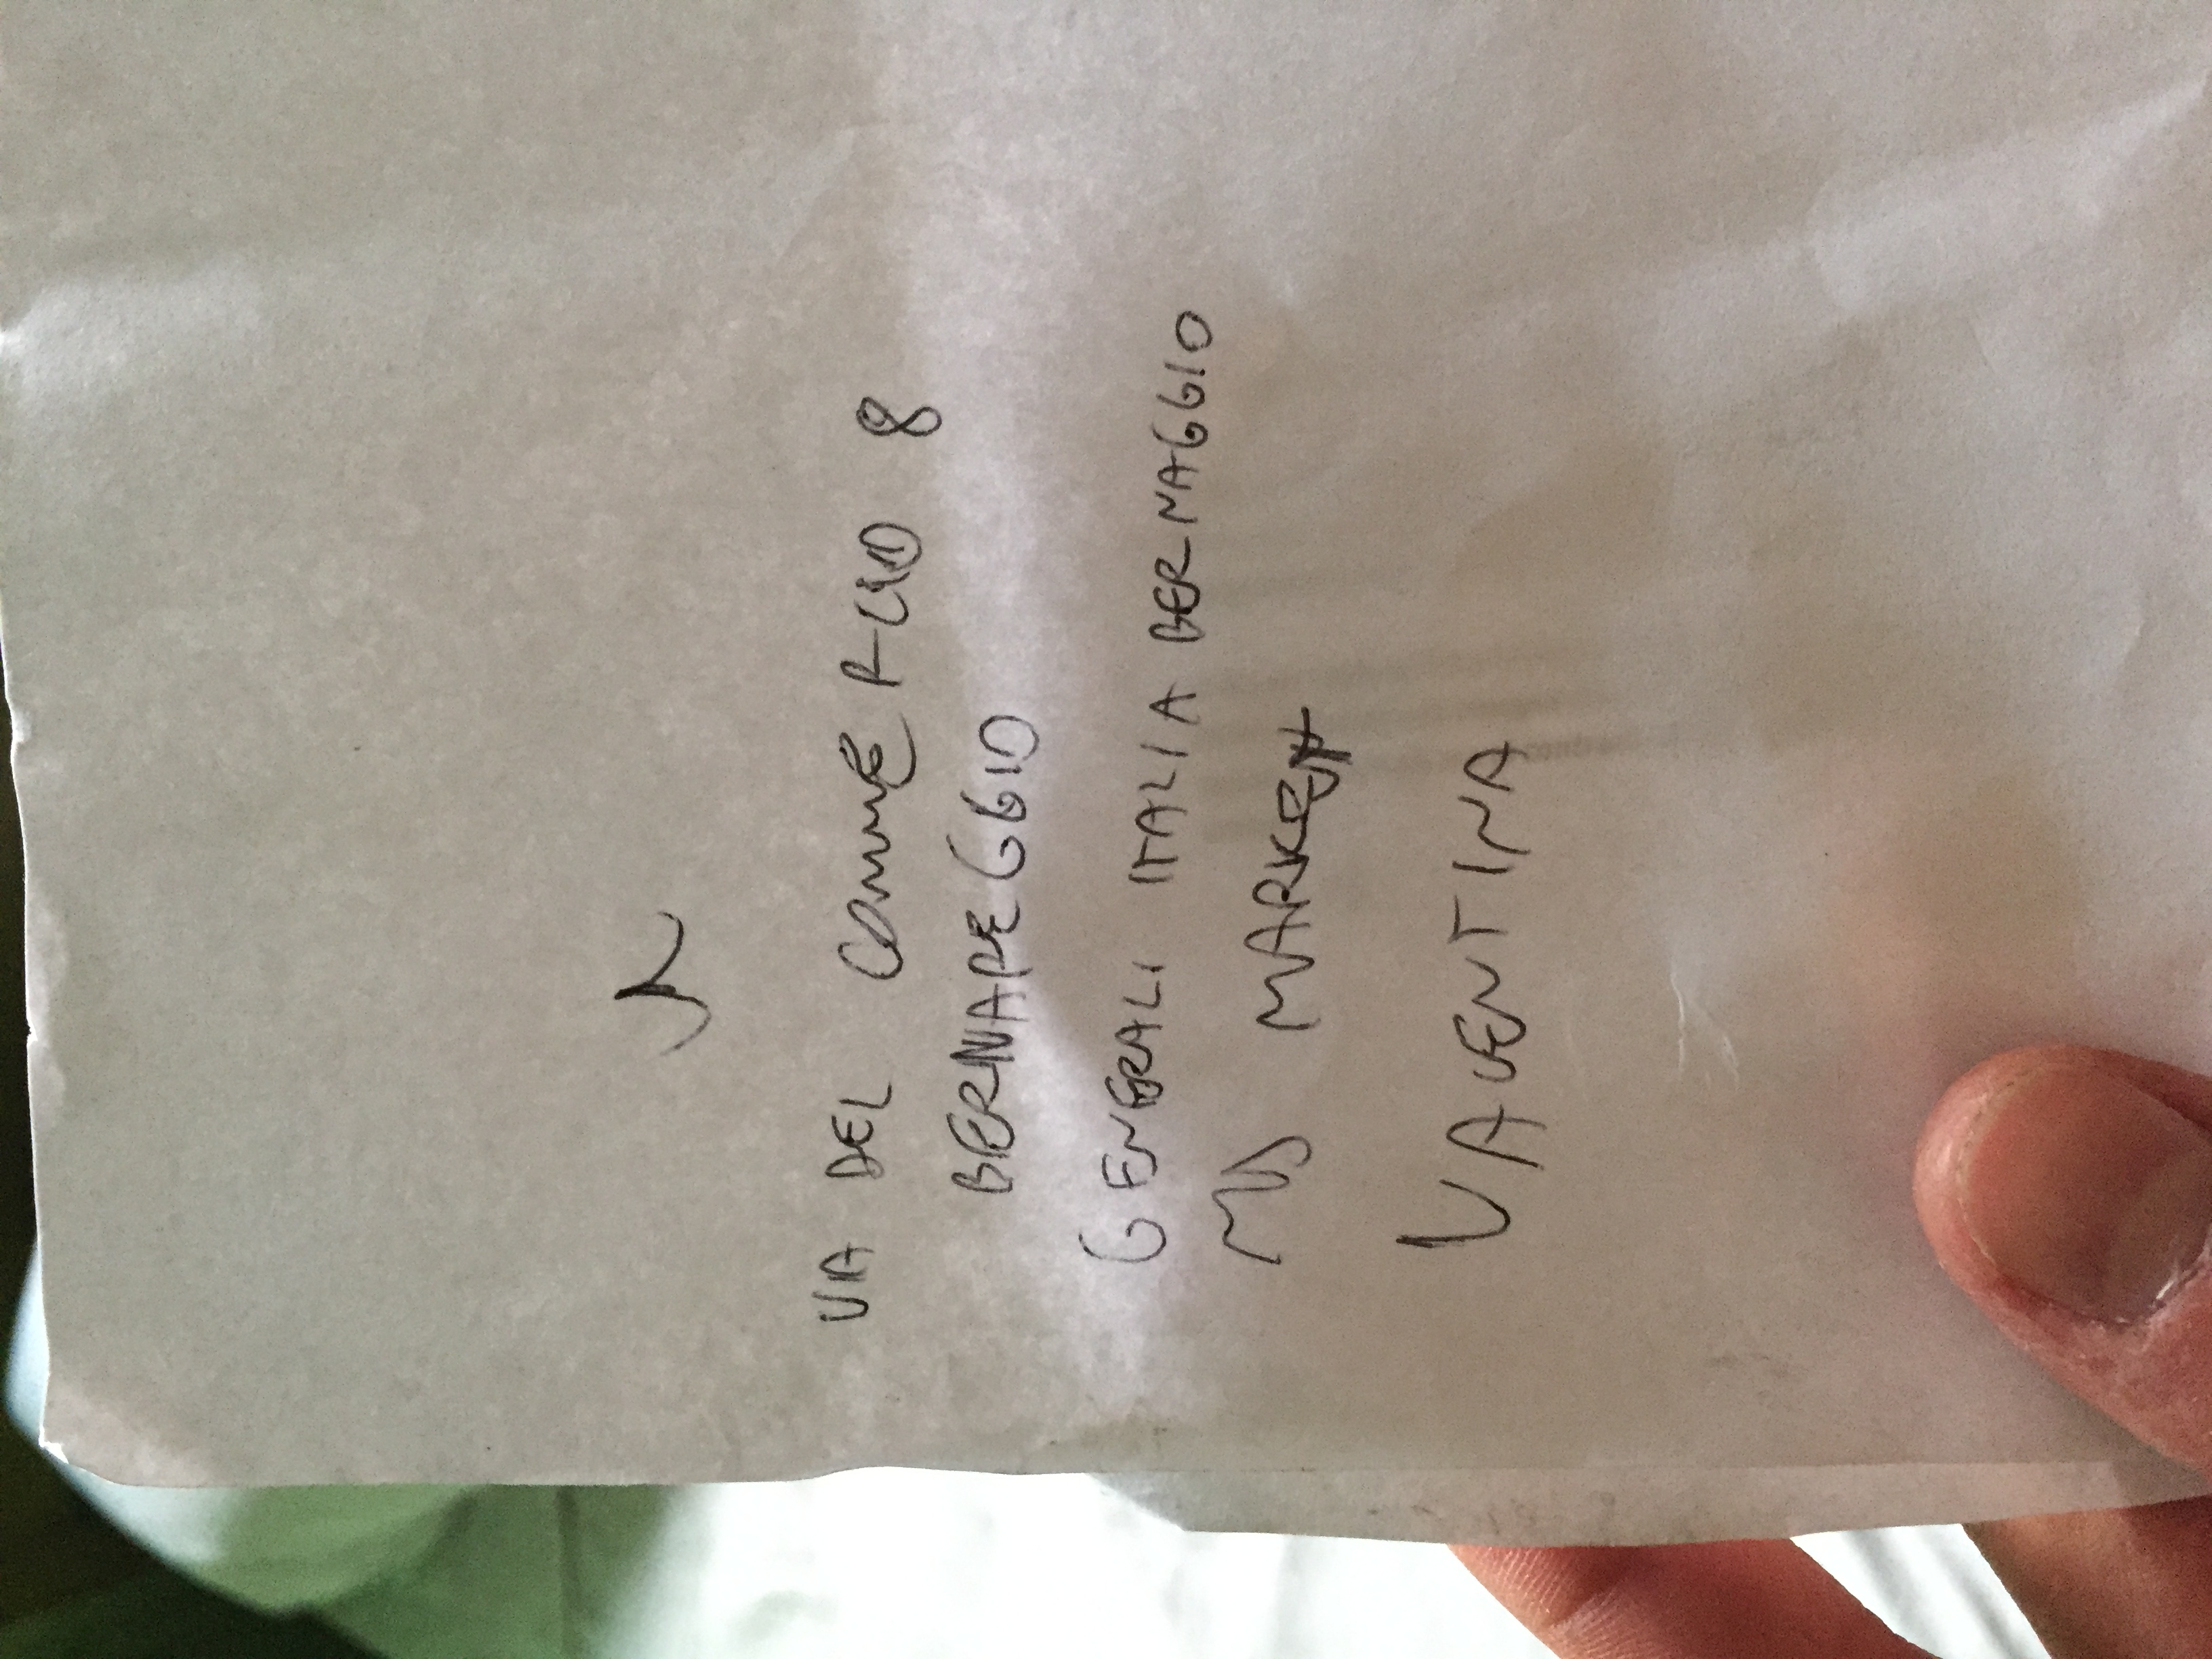 VIA DEL COMMERCIO 8
BERNAREGGIO
GENERALI ITALIA BERNAGGIO
MD MARKET
VALENTINA